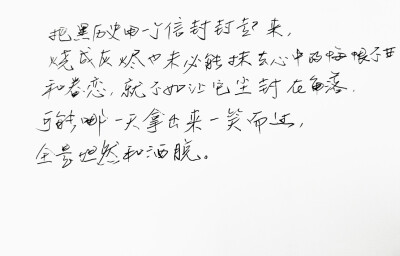 把黑历史由一个信封封起来,
烧成灰烬也未必能抹去心中的悔恨不甘
和眷恋,就不如让它尘封在角落.
可能,哪一天拿出来一笑而过,
全是坦然和洒脱。